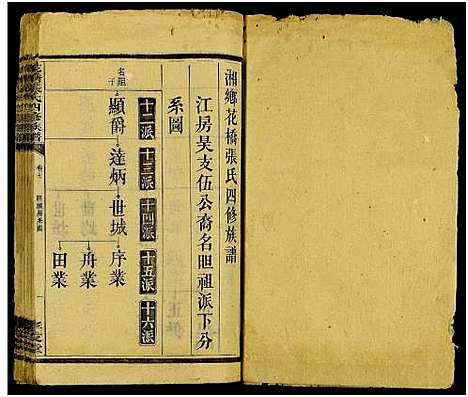 湘鄉花橋張氏四修族譜
江房吴支伍公裔名呾祖派下分
系圖
十二派 十三派 十四派 十五派 十六派
名呾子
顯爵 達炳 世城 序業
舟業
田業